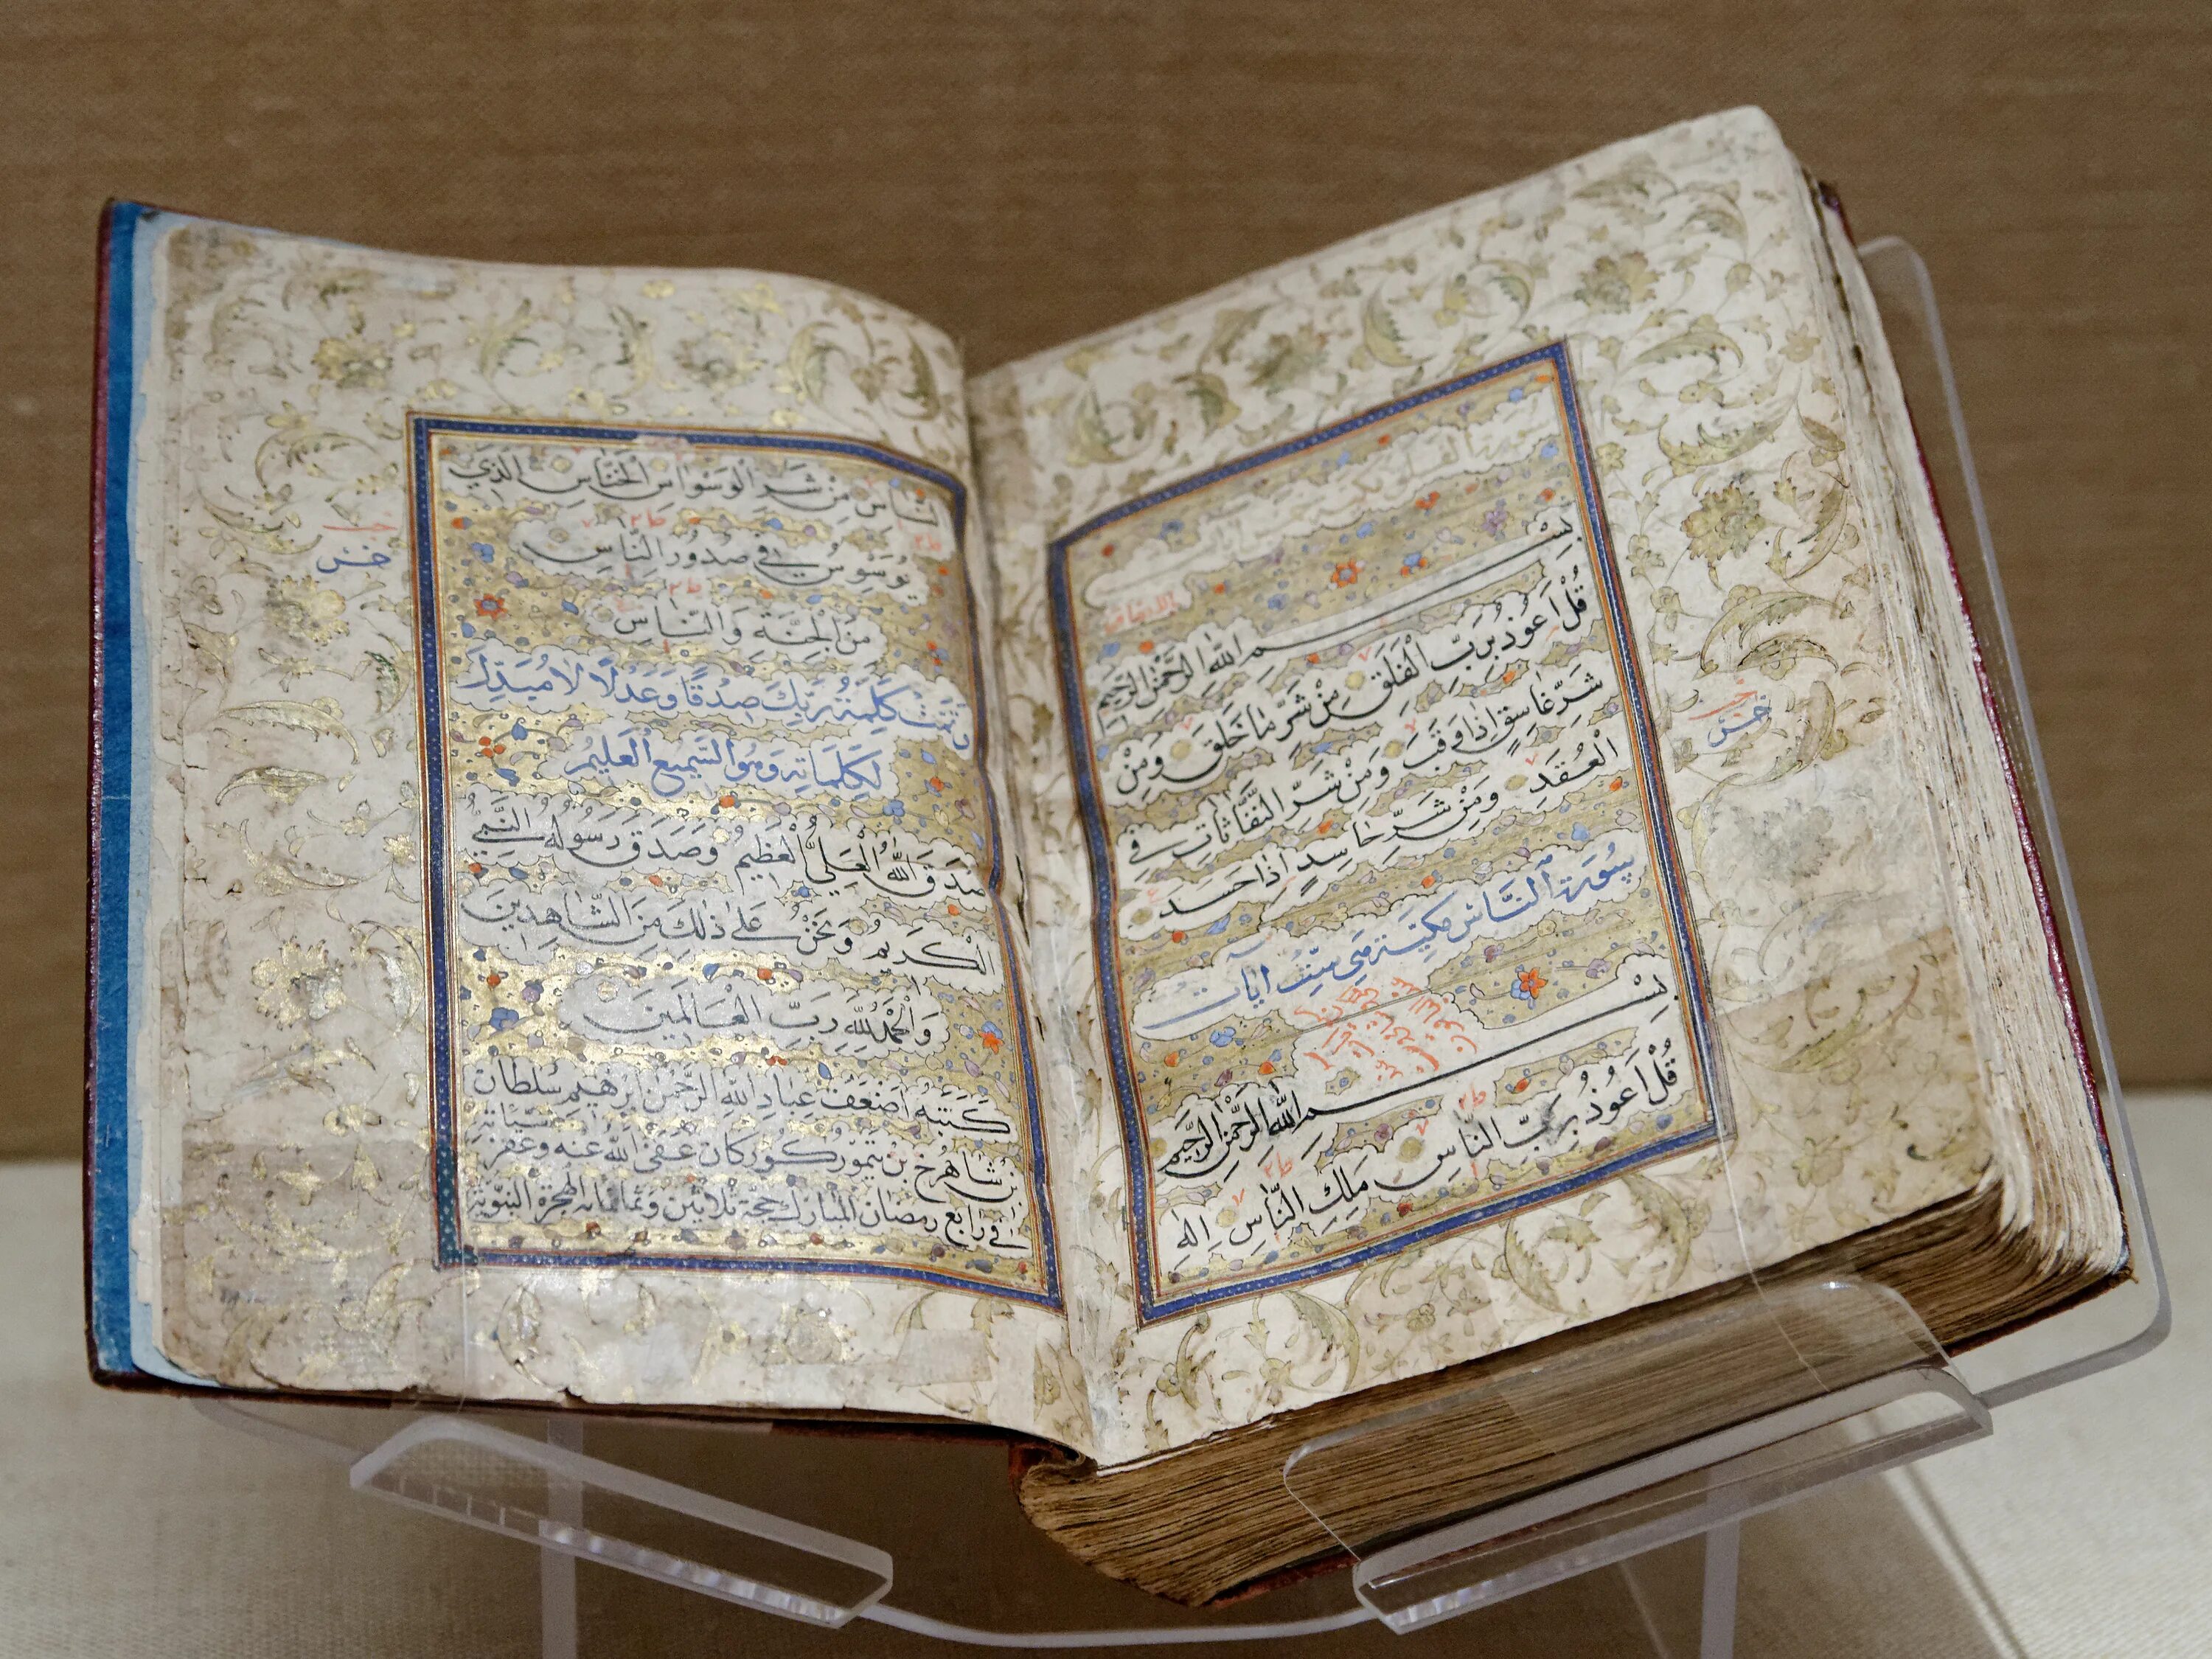 بسم الله الرحمن الرحيم
قُلْ اَعُوذُ بِرَبِّ الْفَلَقِ مِنْ شَرِّ مَا خَلَقَ وَمِنْ
شَرِّ غَاسِقٍ اِذَا وَقَبَ وَمِنْ شَرِّ النَّفَّاثَاتِ فِي
الْعُقَدِ وَمِنْ شَرِّ حَاسِدٍ اِذَا حَسَدَ
سُورَة النَّاس مكيّة وهي ستّ ايات
بسم الله الرحمن الرحيم
قُلْ اَعُوذُ بِرَبِّ النَّاسِ مَلِكِ النَّاسِ اِلٰهِ
خمس
النَّاسِ مِنْ شَرِّ الْوَسْوَاسِ الْخَنَّاسِ الَّذِي
يُوَسْوِسُ فِي صُدُورِ النَّاسِ
مِنَ الْجِنَّةِ وَالنَّاسِ
وَتَمَّتْ كَلِمَةُ رَبِّكَ صِدْقًا وَعَدْلًا لَا مُبَدِّلَ
لِكَلِمَاتِهِ وَهُوَ السَّمِيعُ الْعَلِيمُ
صَدَقَ اللهُ الْعَلِيُّ الْعَظِيمُ وَصَدَقَ رَسُولُهُ النَّبِيُّ
الْكَرِيمُ وَنَحْنُ عَلَى ذٰلِكَ مِنَ الشَّاهِدِينَ
وَالْحَمْدُ لِلّٰهِ رَبِّ الْعَالَمِينَ
كَتَبَهُ اَضْعَفُ عِبَادِ اللهِ الرَّحْمٰنِ اِبرٰهيم سُلطان
بن شاهرخ بن تيمور كوركان عفى الله عنه وغفر سيّاته
في رابع رمضان المبارك حجة ثلاثين وثمانمائة الهجرة النبويّة
خمس